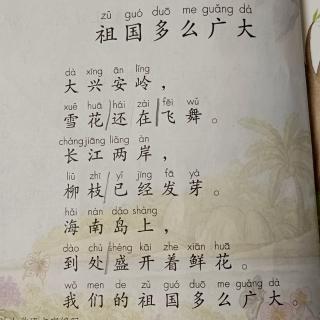 zǔ guó duō me guǎng dà
祖国多么广大
dà xīng ān lǐng
大兴安岭，
xuě huā hái zài fēi wǔ
雪花还在飞舞。
cháng jiāng liǎng àn
长江两岸，
liǔ zhī yǐ jīng fā yá
柳枝已经发芽。
hǎi nán dǎo shàng
海南岛上，
dào chù shèng kāi zhe xiān huā
到处盛开着鲜花。
wǒ men de zǔ guó duō me guǎng dà
我们的祖国多么广大。